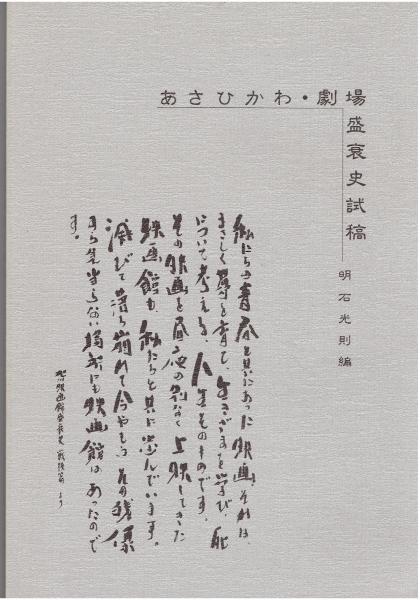 あさひかわ・劇場
盛衰史試稿
明石光則編
私たちの青春と共にあった映画、それは、
まさしく夢を育て、生きざまを学び、死
について考える、人生そのものです。
その映画を昼夜の別なく上映してきた
映画館も、私たちと共に歩んでいます。
滅びて落ち崩れて今やもうその残像
すら見当らない場所にも映画館はあったので
す。
映画館盛衰史 戦後篇 より